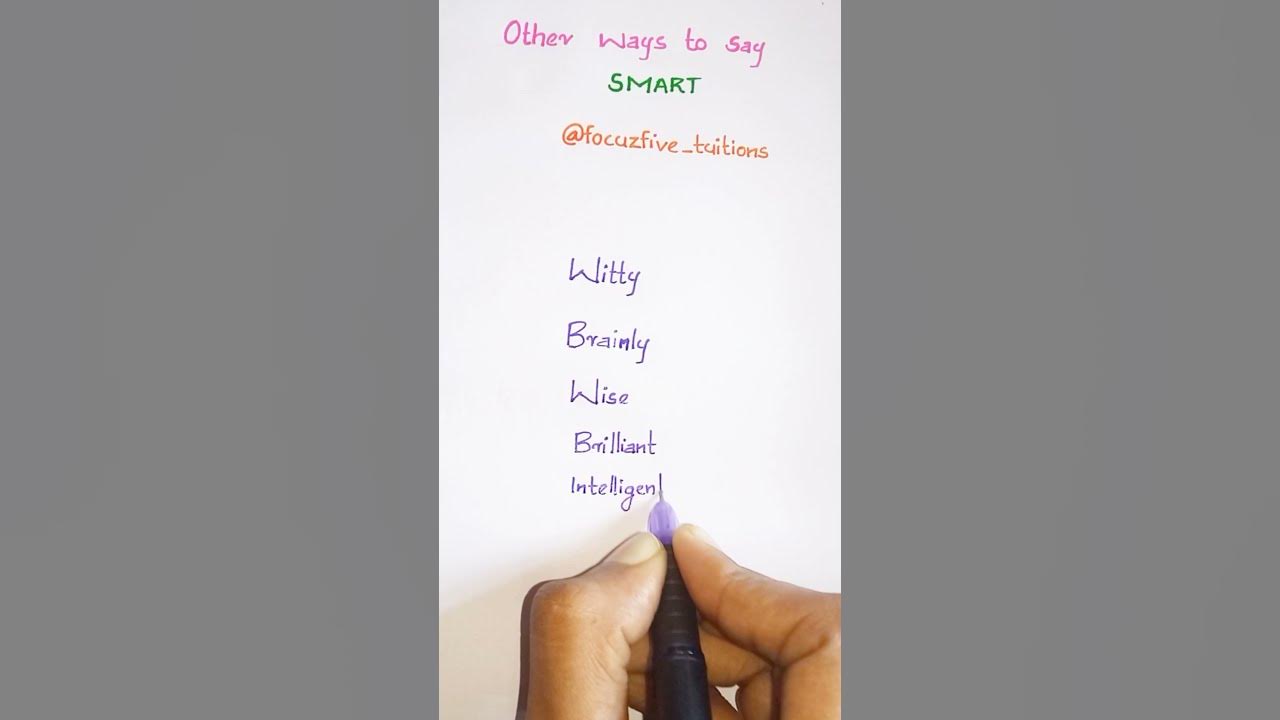 Other ways to say
SMART
@focuzfive_tuitions
Witty
Brainly
Wise
Brilliant
Intelligen